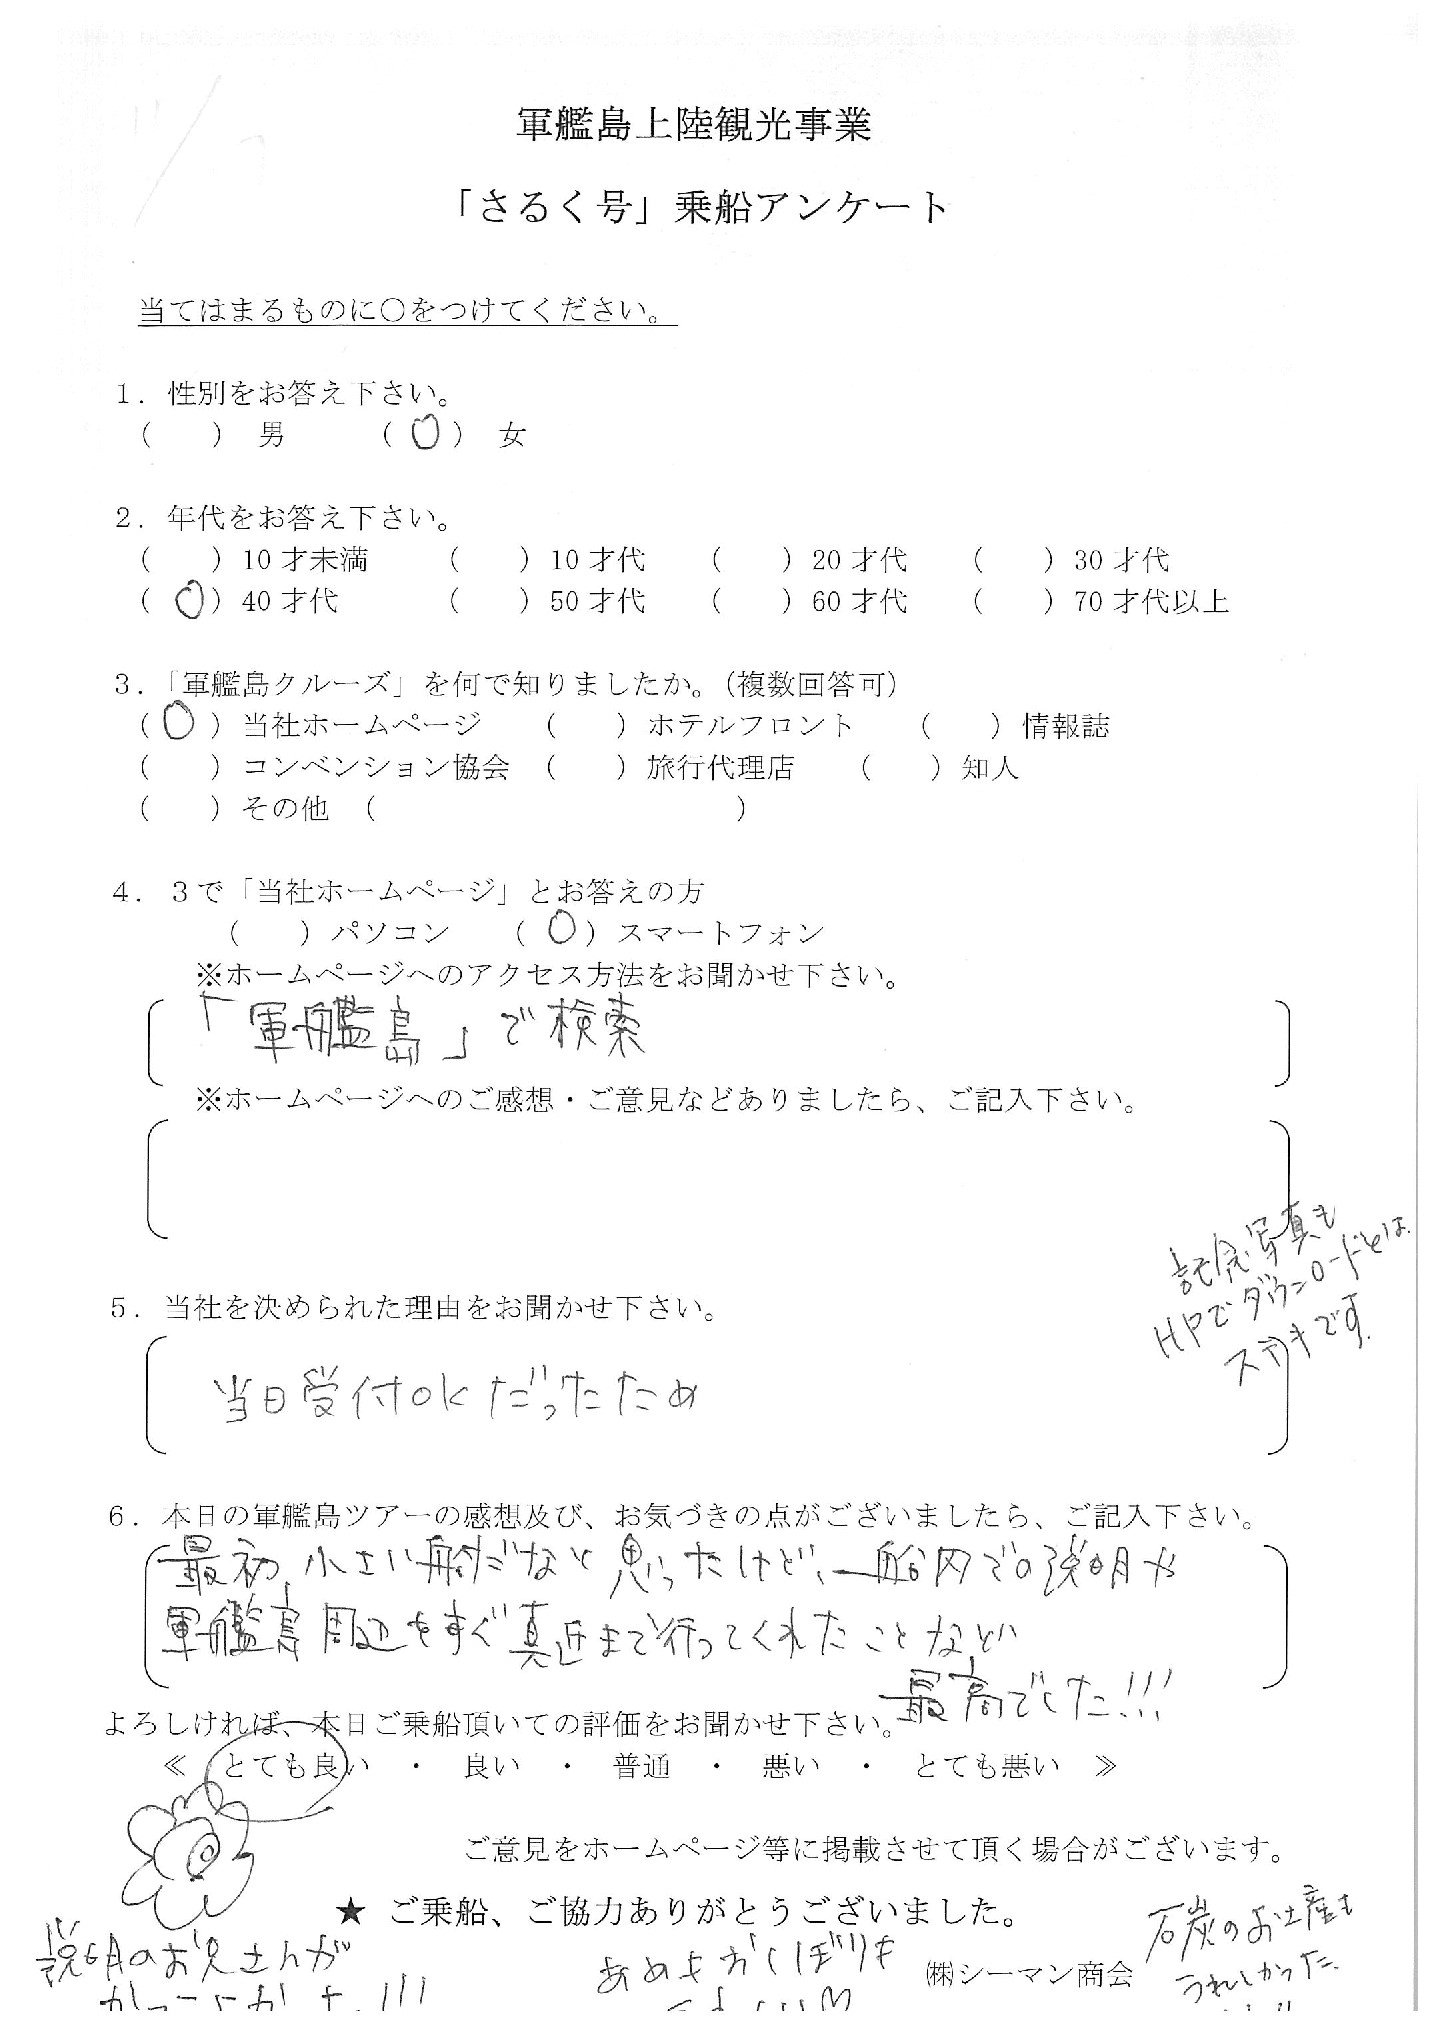 軍艦島上陸観光事業
「さるく号」乗船アンケート
当てはまるものに○をつけてください。
1. 性別をお答え下さい。
( ) 男 (○) 女
2. 年代をお答え下さい。
( ) 10才未満 ( ) 10才代 ( ) 20才代 ( ) 30才代
(○) 40才代 ( ) 50才代 ( ) 60才代 ( ) 70才代以上
3.「軍艦島クルーズ」を何で知りましたか。(複数回答可)
(○) 当社ホームページ ( ) ホテルフロント ( ) 情報誌
( ) コンベンション協会 ( ) 旅行代理店 ( ) 知人
( ) その他 ( )
4. 3で「当社ホームページ」とお答えの方
( ) パソコン (○) スマートフォン
※ホームページへのアクセス方法をお聞かせ下さい。
「軍艦島」で検索
※ホームページへのご感想・ご意見などありましたら、ご記入下さい。
記念写真も
HPでダウンロードとは
ステキです.
5. 当社を決められた理由をお聞かせ下さい。
当日受付OKだったため
6. 本日の軍艦島ツアーの感想及び、お気づきの点がございましたら、ご記入下さい。
最初、小さい船だなと思ったけど、船内での説明や
軍艦島周辺をすぐ真近まで行ってくれたことなどい
最高でした!!!
よろしければ、本日ご乗船頂いての評価をお聞かせ下さい。
≪ とても良い ・ 良い ・ 普通 ・ 悪い ・ とても悪い ≫
ご意見をホームページ等に掲載させて頂く場合がございます。
★ ご乗船、ご協力ありがとうございました。
説明のお兄さんが
かっこよかった!!!
あめもおしぼりも
㈱シーマン商会
石炭のお土産も
うれしかった.